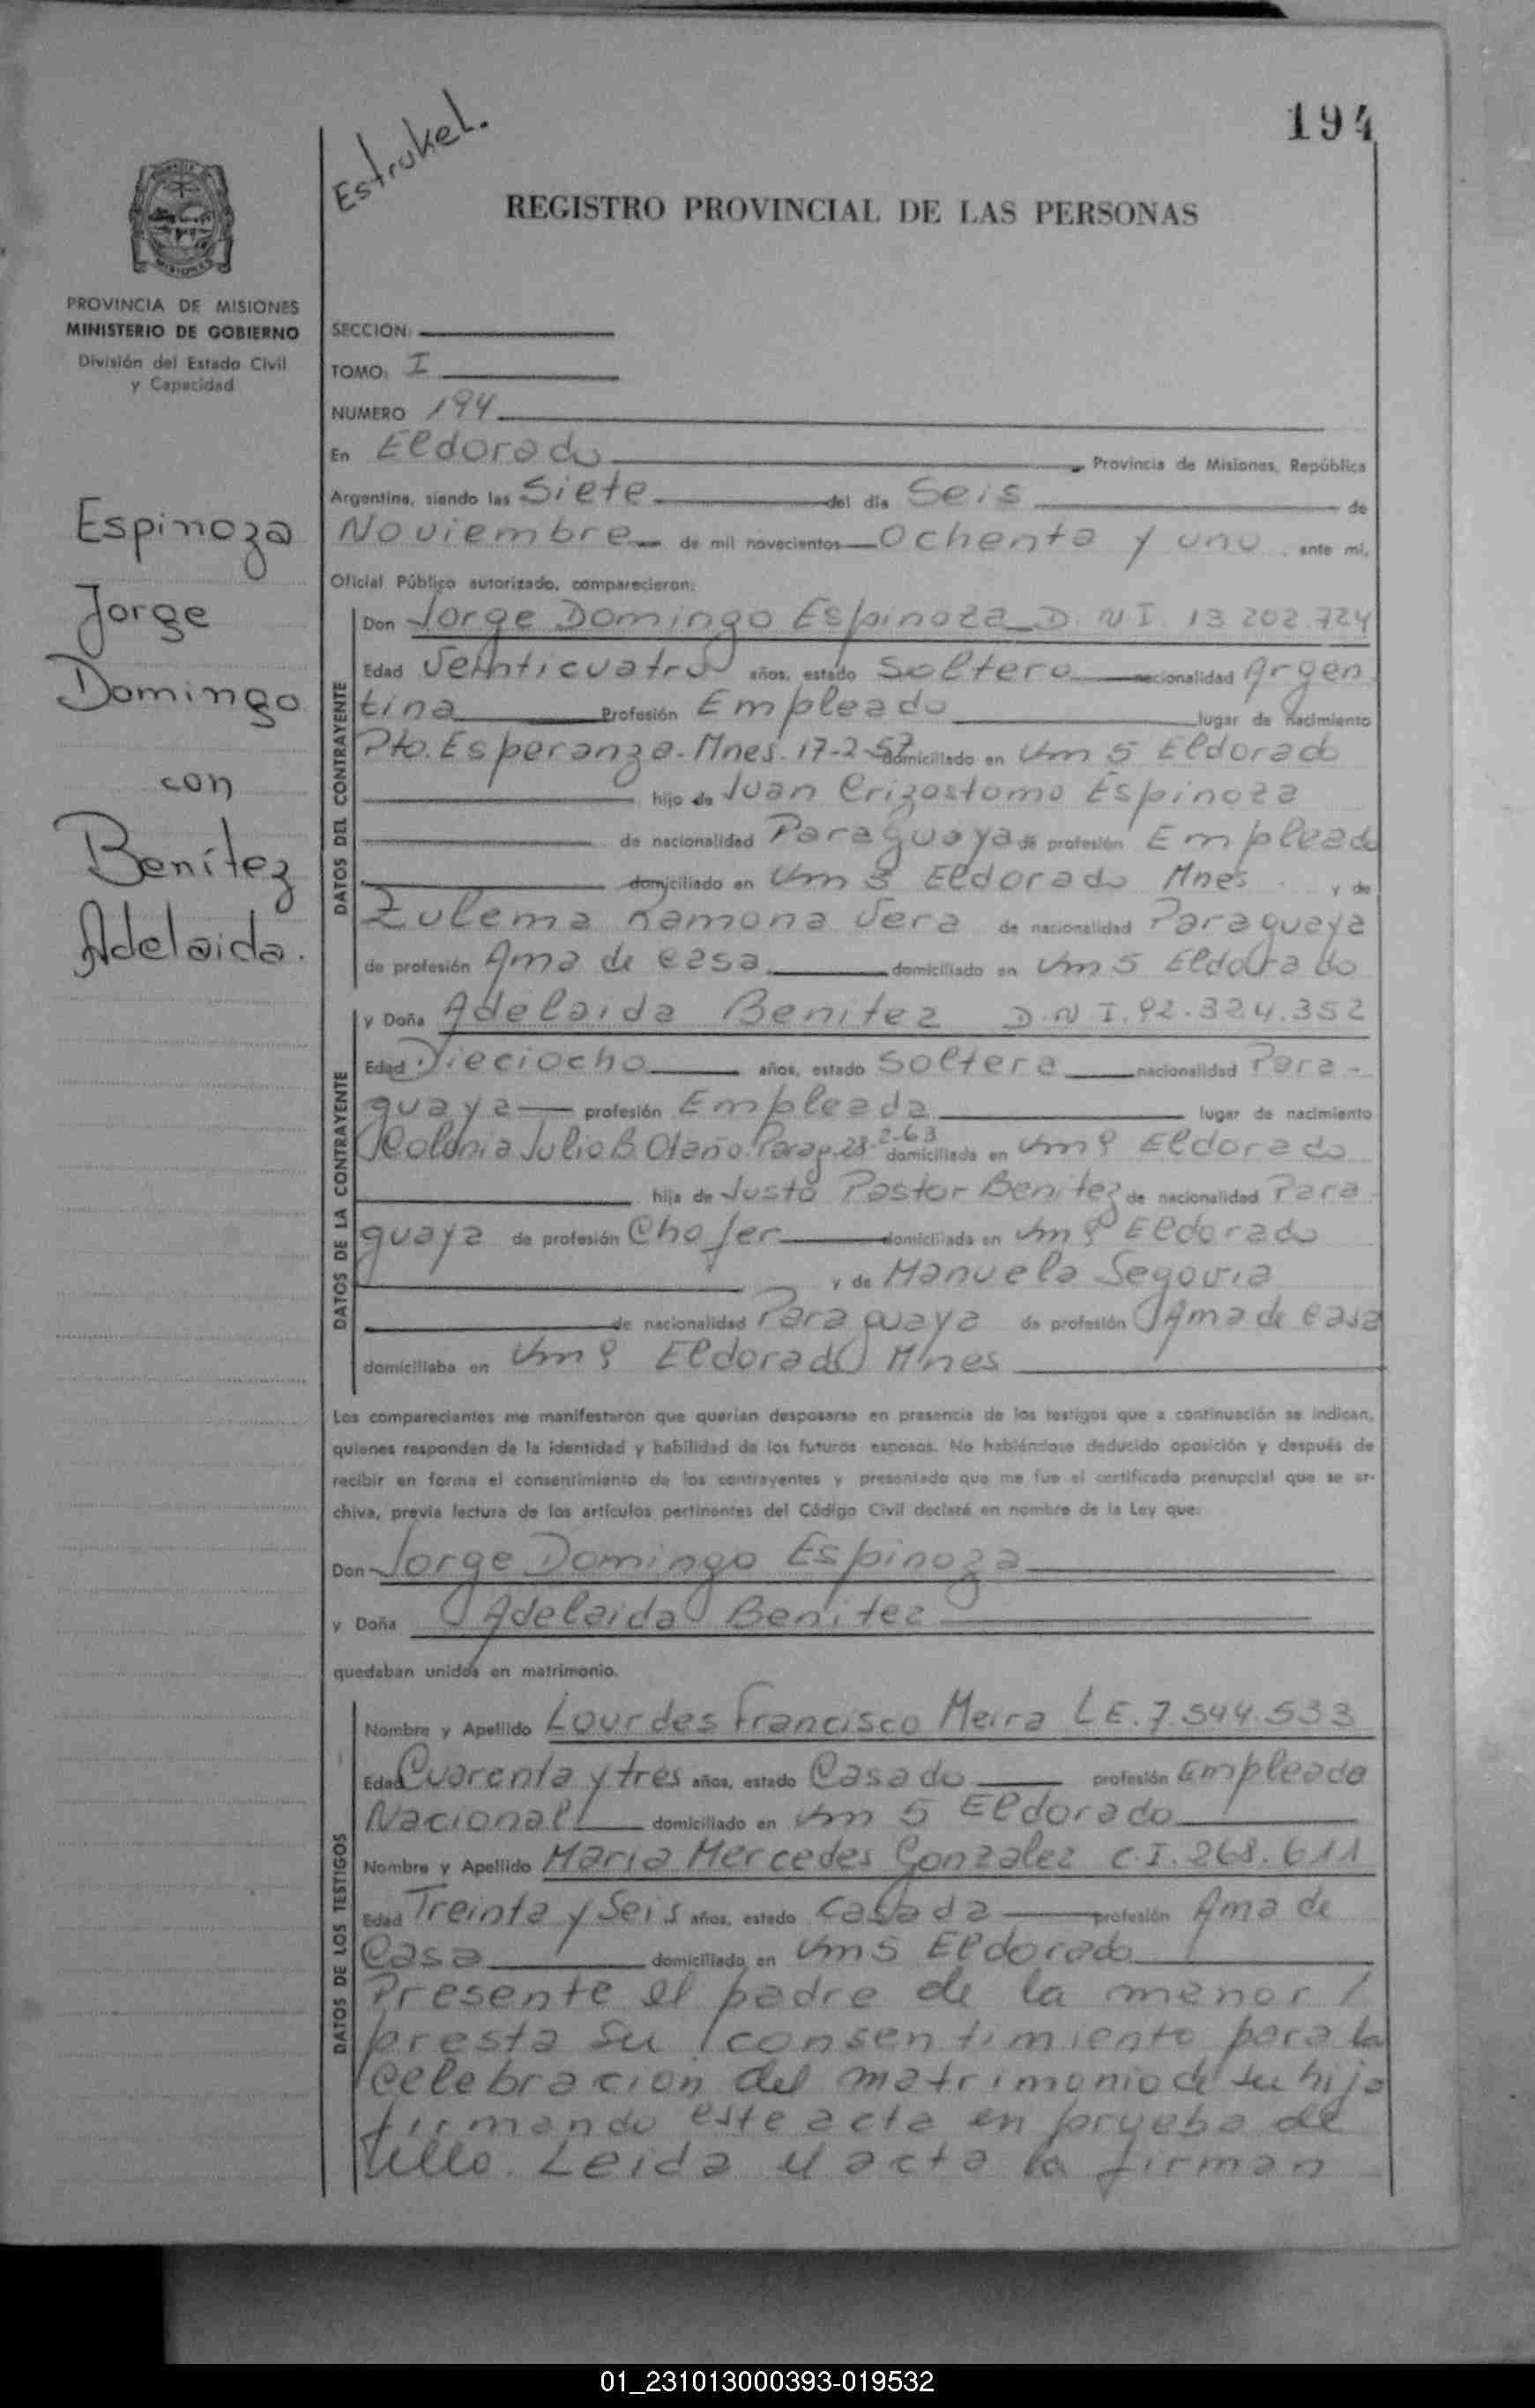 194
Estrukel.
REGISTRO PROVINCIAL DE LAS PERSONAS
MISIONES
PROVINCIA DE MISIONES
MINISTERIO DE GOBIERNO
División del Estado Civil
y Capacidad
Espinoza
Jorge
Domingo
con
Benítez
Adelaida.
SECCION:
TOMO: I
NUMERO 194
En Eldorado Provincia de Misiones, República
Argentina, siendo las Siete del día Seis de
Noviembre de mil novecientos Ochenta y uno, ante mí,
Oficial Público autorizado, comparecieron:
DATOS DEL CONTRAYENTE
Don Jorge Domingo Espinoza D.N I. 13 202.724
Edad Veinticuatro años, estado Soltero nacionalidad Argen
tina Profesión Empleado lugar de nacimiento
Pto. Esperanza. Mnes. 17-2-57 domiciliado en Km 5 Eldorado
hijo de Juan Crizostomo Espinoza
de nacionalidad Paraguaya de profesión Empleado
domiciliado en Km 5 Eldorado Mnes. y de
Zulema Ramona Vera de nacionalidad Paraguaya
de profesión Ama de casa domiciliado en Km 5 Eldorado
DATOS DE LA CONTRAYENTE
y Doña Adelaida Benitez D.N I. 92.324.352
Edad Dieciocho años, estado Soltera nacionalidad Para-
guaya profesión Empleada lugar de nacimiento
Colonia Julio B. Otaño. Parag. 23-2-63 domiciliada en Km 9 Eldorado
hija de Justo Pastor Benitez de nacionalidad Para
guaya de profesión Chofer domiciliada en Km 9 Eldorado
y de Manuela Segovia
de nacionalidad Paraguaya de profesión Ama de casa
domiciliaba en Km 9 Eldorado Mnes
Los comparecientes me manifestaron que querían desposarse en presencia de los testigos que a continuación se indican,
quienes responden de la identidad y habilidad de los futuros esposos. No habiéndose deducido oposición y después de
recibir en forma el consentimiento de los contrayentes y presentado que me fue el certificado prenupcial que se ar-
chiva, previa lectura de los artículos pertinentes del Código Civil declaré en nombre de la Ley que:
Don Jorge Domingo Espinoza
y Doña Adelaida Benitez
quedaban unidos en matrimonio.
DATOS DE LOS TESTIGOS
Nombre y Apellido Lourdes Francisco Meira L E. 7.544.533
Edad Cuarenta y tres años, estado Casado profesión Empleado
Nacional domiciliado en Km 5 Eldorado
Nombre y Apellido Maria Mercedes Gonzalez C.I. 268.611
Edad Treinta y Seis años, estado casada profesión Ama de
Casa domiciliada en Km 5 Eldorado
Presente el padre de la menor /
presta su consentimiento para la
celebracion del matrimonio de su hija
firmando este acta en prueba de
ello. Leida el acta la firman
01_231013000393-019532